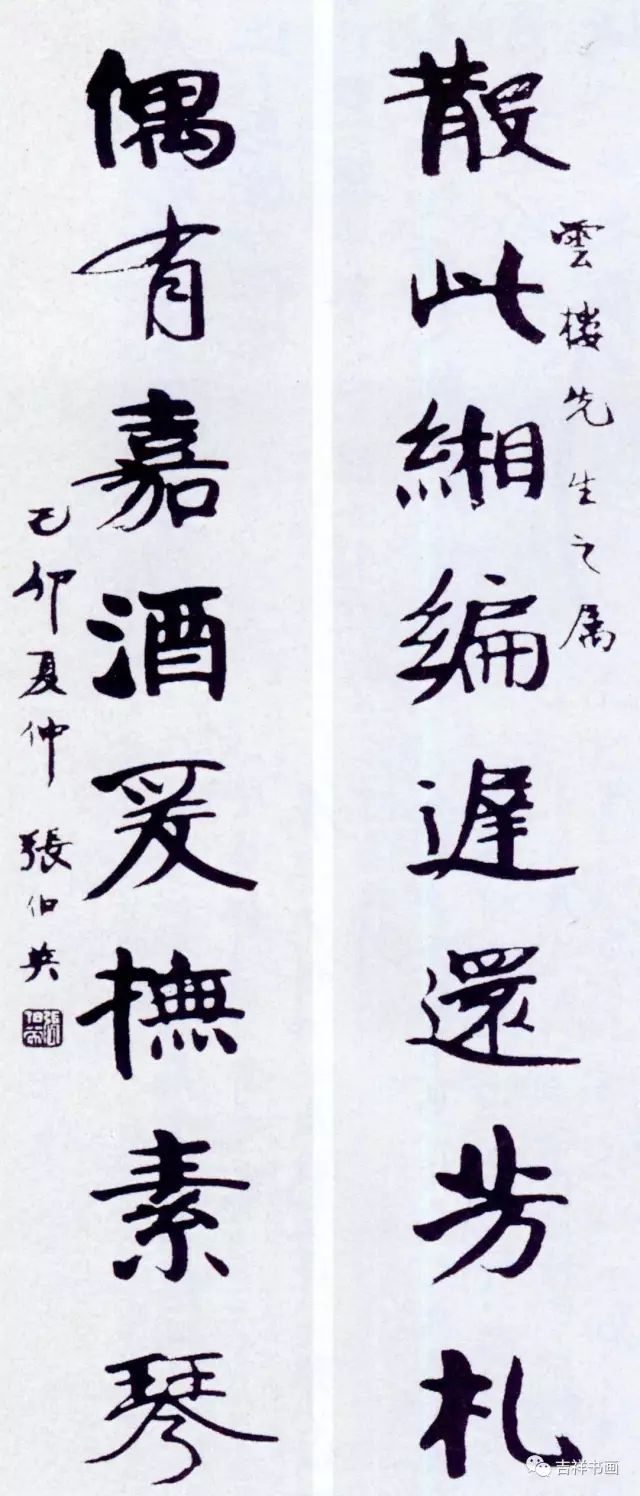 散此緗編遲還芳札
雲樓先生之属
偶有嘉酒爰撫素琴
己卯夏仲張伯英
吉祥书画